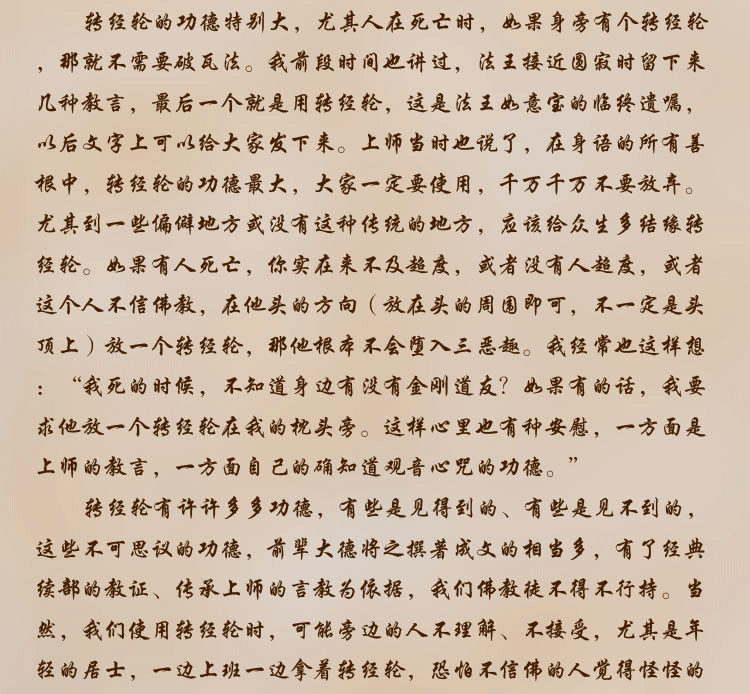 转经轮的功德特别大，尤其人在死亡时，如果身旁有个转经轮
，那就不需要破瓦法。我前段时间也讲过，法王接近圆寂时留下来
几种教言，最后一个就是用转经轮，这是法王如意宝的临终遗嘱，
以后文字上可以给大家发下来。上师当时也说了，在身语的所有善
根中，转经轮的功德最大，大家一定要使用，千万千万不要放弃。
尤其到一些偏僻地方或没有这种传统的地方，应该给众生多结缘转
经轮。如果有人死亡，你实在来不及超度，或者没有人超度，或者
这个人不信佛教，在他头的方向（放在头的周围即可，不一定是头
顶上）放一个转经轮，那他根本不会堕入三恶趣。我经常也这样想
：“我死的时候，不知道身边有没有金刚道友？如果有的话，我要
求他放一个转经轮在我的枕头旁。这样心里也有种安慰，一方面是
上师的教言，一方面自己的确知道观音心咒的功德。”
转经轮有许许多多功德，有些是见得到的、有些是见不到的，
这些不可思议的功德，前辈大德将之撰著成文的相当多，有了经典
续部的教证、传承上师的言教为依据，我们佛教徒不得不行持。当
然，我们使用转经轮时，可能旁边的人不理解、不接受，尤其是年
轻的居士，一边上班一边拿着转经轮，恐怕不信佛的人觉得怪怪的